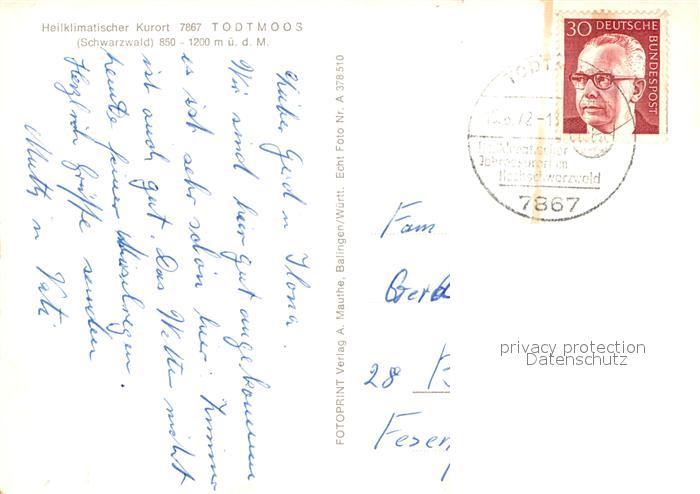 Heilklimatischer Kurort 7867 TODTMOOS
(Schwarzwald) 850 - 1200 m ü. d. M.
Lieber Gerd u Ilona.
Wir sind hier gut angekommen
es ist sehr schön hier. Zimmer
ist auch gut. Das Wetter nicht
heute feiner Nieselregen.
Herzliche Grüße senden
Mutti u Vati.
FOTOPRINT Verlag A. Mauthe, Balingen/Württ. Echt Foto Nr. A 378510
30 DEUTSCHE
BUNDESPOST
TODT
.72-18
Heilklimatischer
Jahreskurort im
Hochschwarzwald
7867
Fam
Gerd
28 B
privacy protection
Datenschutz